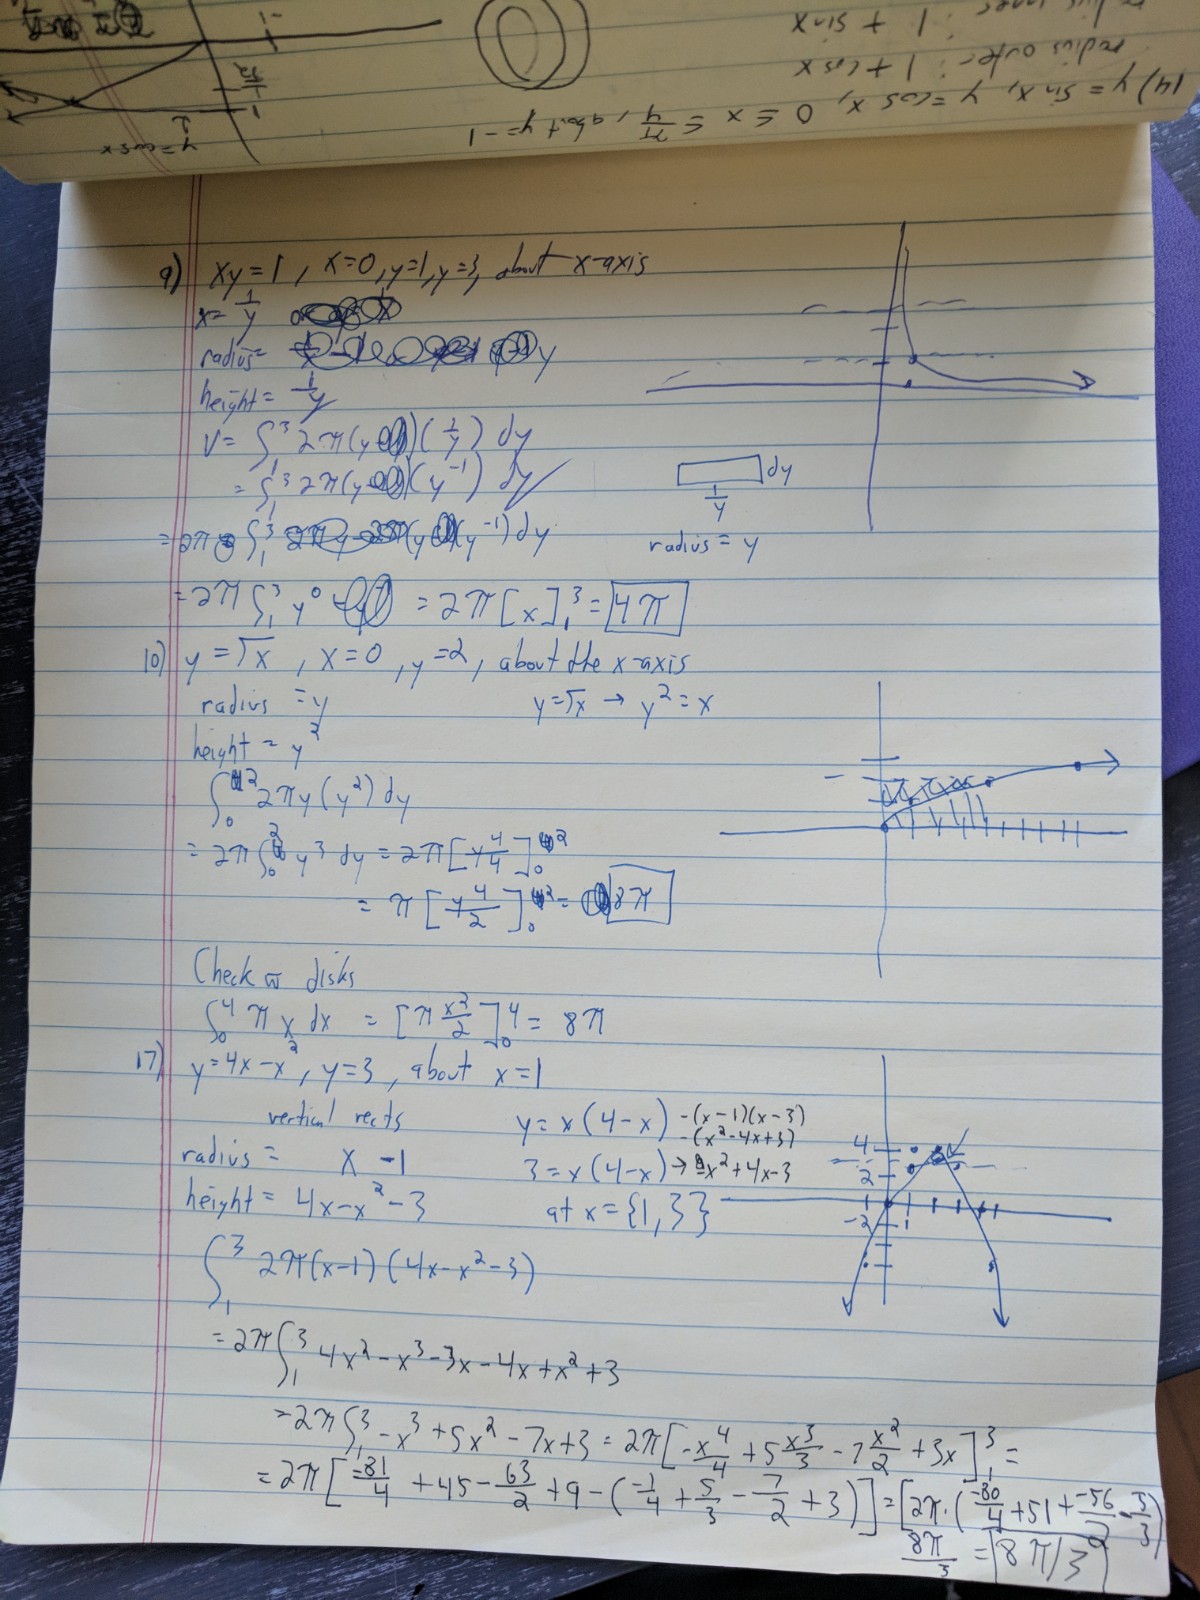 14) y = sin x, y = cos x, 0 ≤ x ≤ π/4, about y = -1
radius outer: 1 + cos x
: 1 + sin x
y = cos x
9) xy = 1, x=0, y=1, y=3, about x-axis
x = 1/y
radius = y
height = 1/y
V = ∫₁³ 2π(y)(1/y) dy
= ∫₁³ 2π(y)(y⁻¹) dy
dy
1/y
radius = y
= 2π ∫₁³ (y)(y⁻¹) dy
= 2π ∫₁³ y⁰ = 2π [x]₁³ = 4π
10) y = √x, x=0, y=2, about the x-axis
radius = y
y=√x → y² = x
height = y²
∫₀² 2πy (y²) dy
= 2π ∫₀² y³ dy = 2π [y⁴/4]₀²
= π [y⁴/2]₀² = 8π
Check w disks
∫₀⁴ π x dx = [π x²/2]₀⁴ = 8π
17) y = 4x - x², y = 3, about x = 1
vertical rects
y = x(4-x)
-(x-1)(x-3)
-(x²-4x+3)
radius = x - 1
3 = x(4-x) → -x²+4x-3
height = 4x - x² - 3
at x = {1, 3}
4
2
1
-2
1
∫₁³ 2π(x-1)(4x-x²-3)
= 2π ∫₁³ 4x² - x³ - 3x - 4x + x² + 3
= 2π ∫₁³ -x³ + 5x² - 7x + 3 = 2π [-x⁴/4 + 5 x³/3 - 7 x²/2 + 3x]₁³ =
= 2π [-81/4 + 45 - 63/2 + 9 - (-1/4 + 5/3 - 7/2 + 3)] = [2π · (-80/4 + 51 + -56/2 - 5/3)
8π/3 = 8π/3